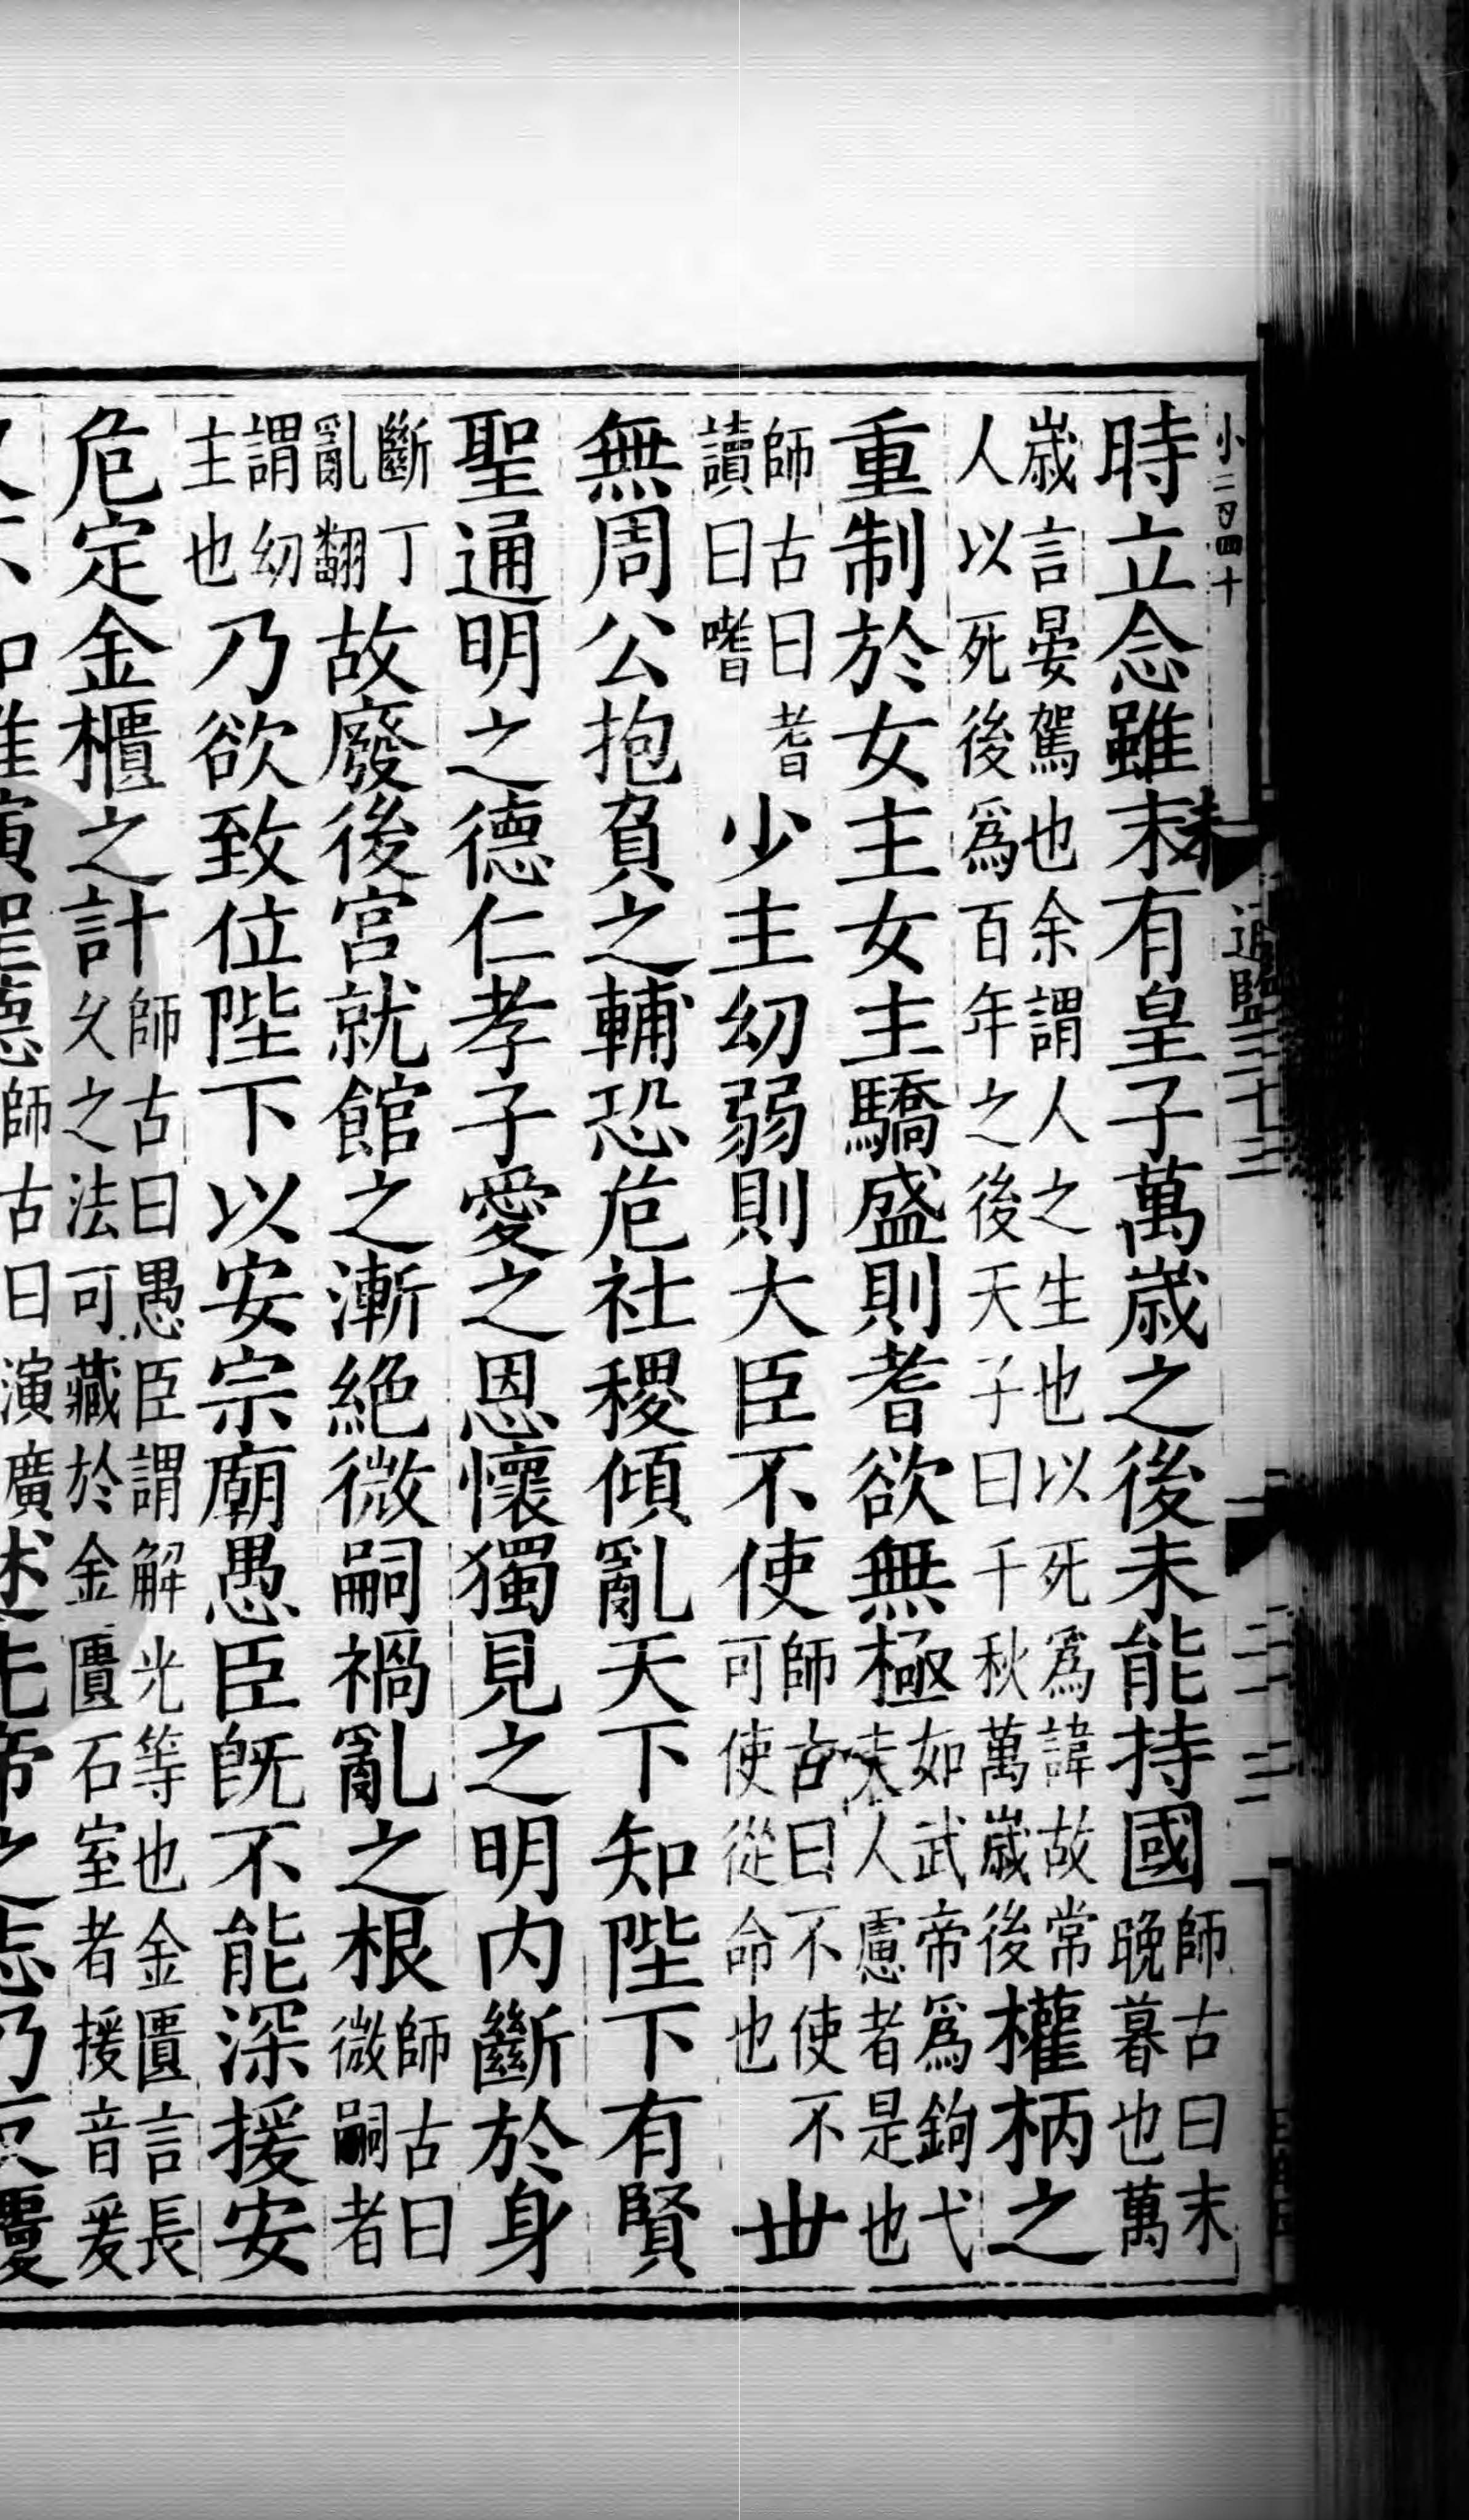 小二百四十
通鑑三十三
時立念雖末有皇子萬歲之後未能持國師古曰末晚暮也萬
歲言晏駕也余謂人之生也以死爲諱故常人以死後爲百年之後天子曰千秋萬歲後權柄之
重制於女主女主驕盛則耆欲無極如武帝爲鉤弋夫人慮者是也
師古曰耆讀曰嗜少主幼弱則大臣不使師古曰不使不可使從命也世
無周公抱負之輔恐危社稷傾亂天下知陛下有賢
聖通明之德仁孝子愛之恩懷獨見之明內斷於身
斷丁亂翻故廢後宮就館之漸絶微嗣禍亂之根師古曰微嗣者
謂幼主也乃欲致位陛下以安宗廟愚臣旣不能深援安
危定金櫃之計師古曰愚臣謂解光等也金匱言長久之法可藏於金匱石室者援音爰